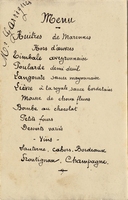 Menu
Huîtres de Marennes
Hors d'œuvres
Timbale aveyronnaise
Poularde demi deuil
Langouste sauce mayonnaise
Lièvre à la royale sauce bordelaise
Mousse de choux fleurs
Bombe au chocolat
Petits fours
Desserts variés
- Vins -
Sauternes Cahors Bordeaux
Frontignan Champagne